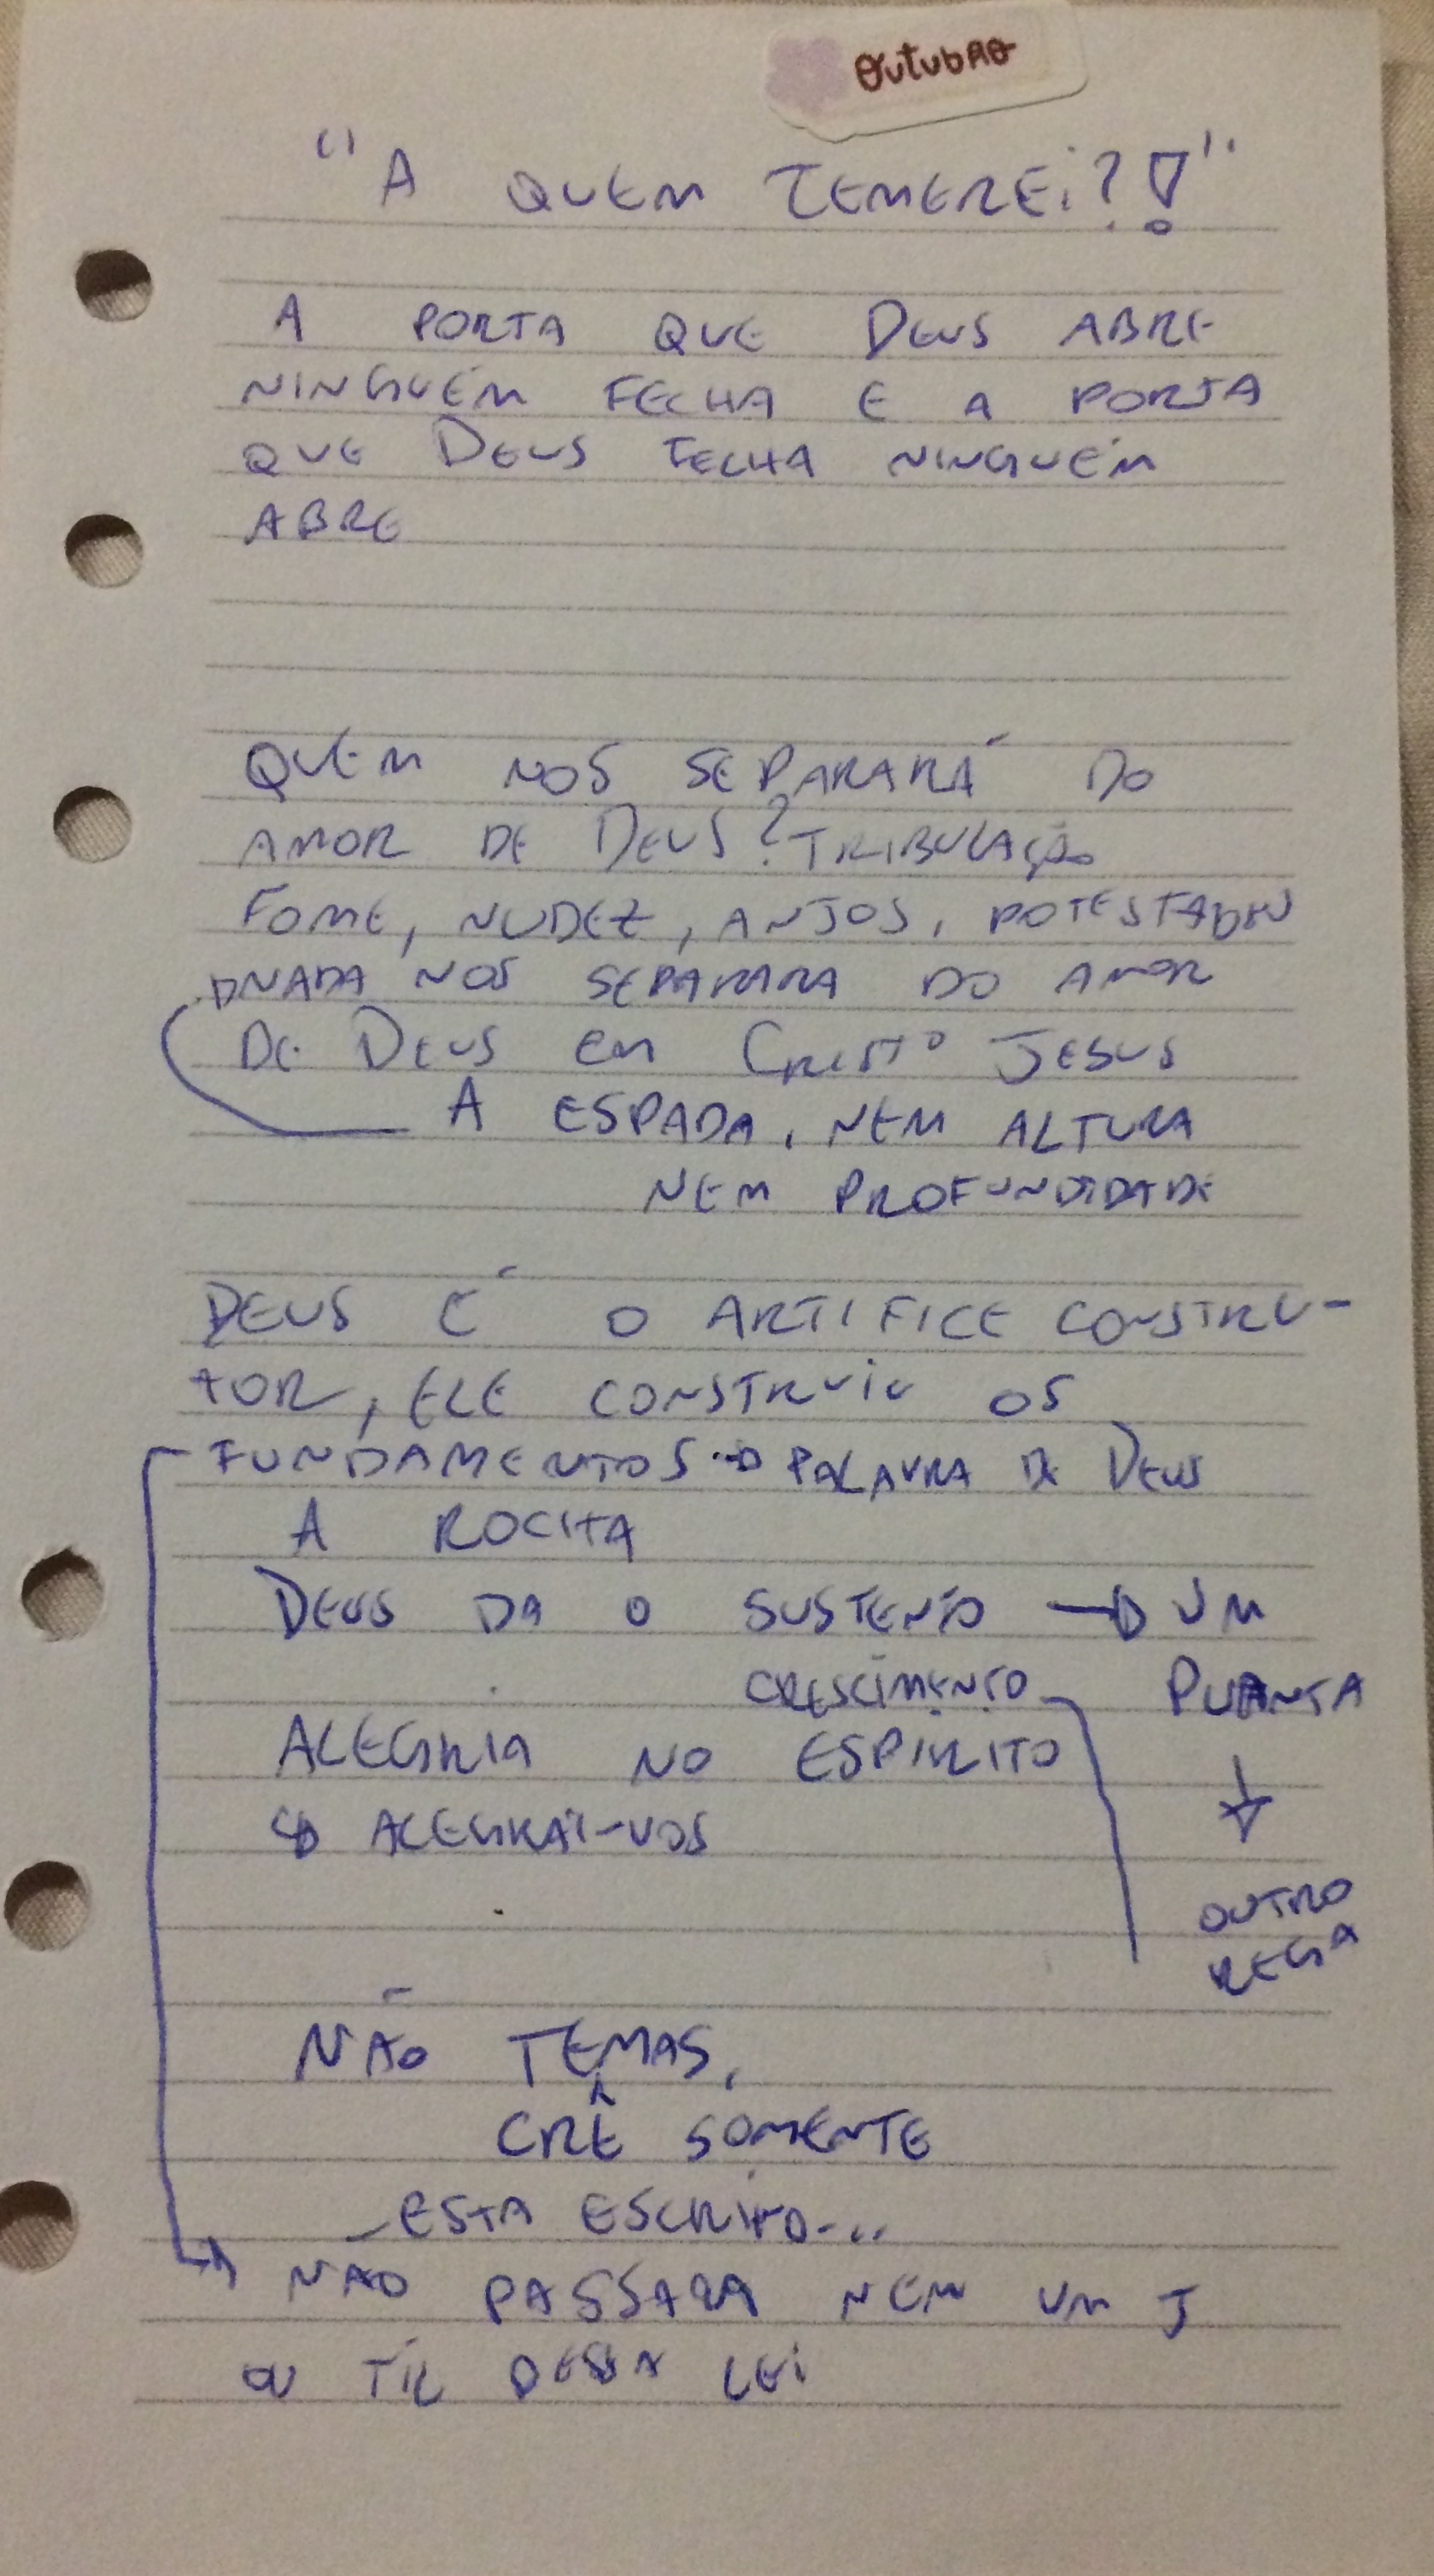 Outubro
"A QUEM TEMEREI?!"
A PORTA QUE DEUS ABRE
NINGUÉM FECHA E A PORTA
QUE DEUS FECHA NINGUÉM
ABRE
QUEM NOS SEPARARÁ DO
AMOR DE DEUS? TRIBULAÇÃO
FOME, NUDEZ, ANJOS, POTESTADES
NADA NOS SEPARARA DO AMOR
DE DEUS EM CRISTO JESUS
A ESPADA, NEM ALTURA
NEM PROFUNDIDADE
DEUS É O ARTIFICE CONSTRU-
TOR, ELE CONSTRUIU OS
FUNDAMENTOS → PALAVRA DE DEUS
A ROCHA
DEUS DA O SUSTENTO → UM
CRESCIMENTO PLANTA
ALEGRIA NO ESPÍRITO
↳ ALEGRAI-VOS
OUTRO
REGA
NÃO TEMAS,
CRÊ SOMENTE
ESTA ESCRITO...
NÃO PASSARA NEM UM J
OU TIL DESSA LEI